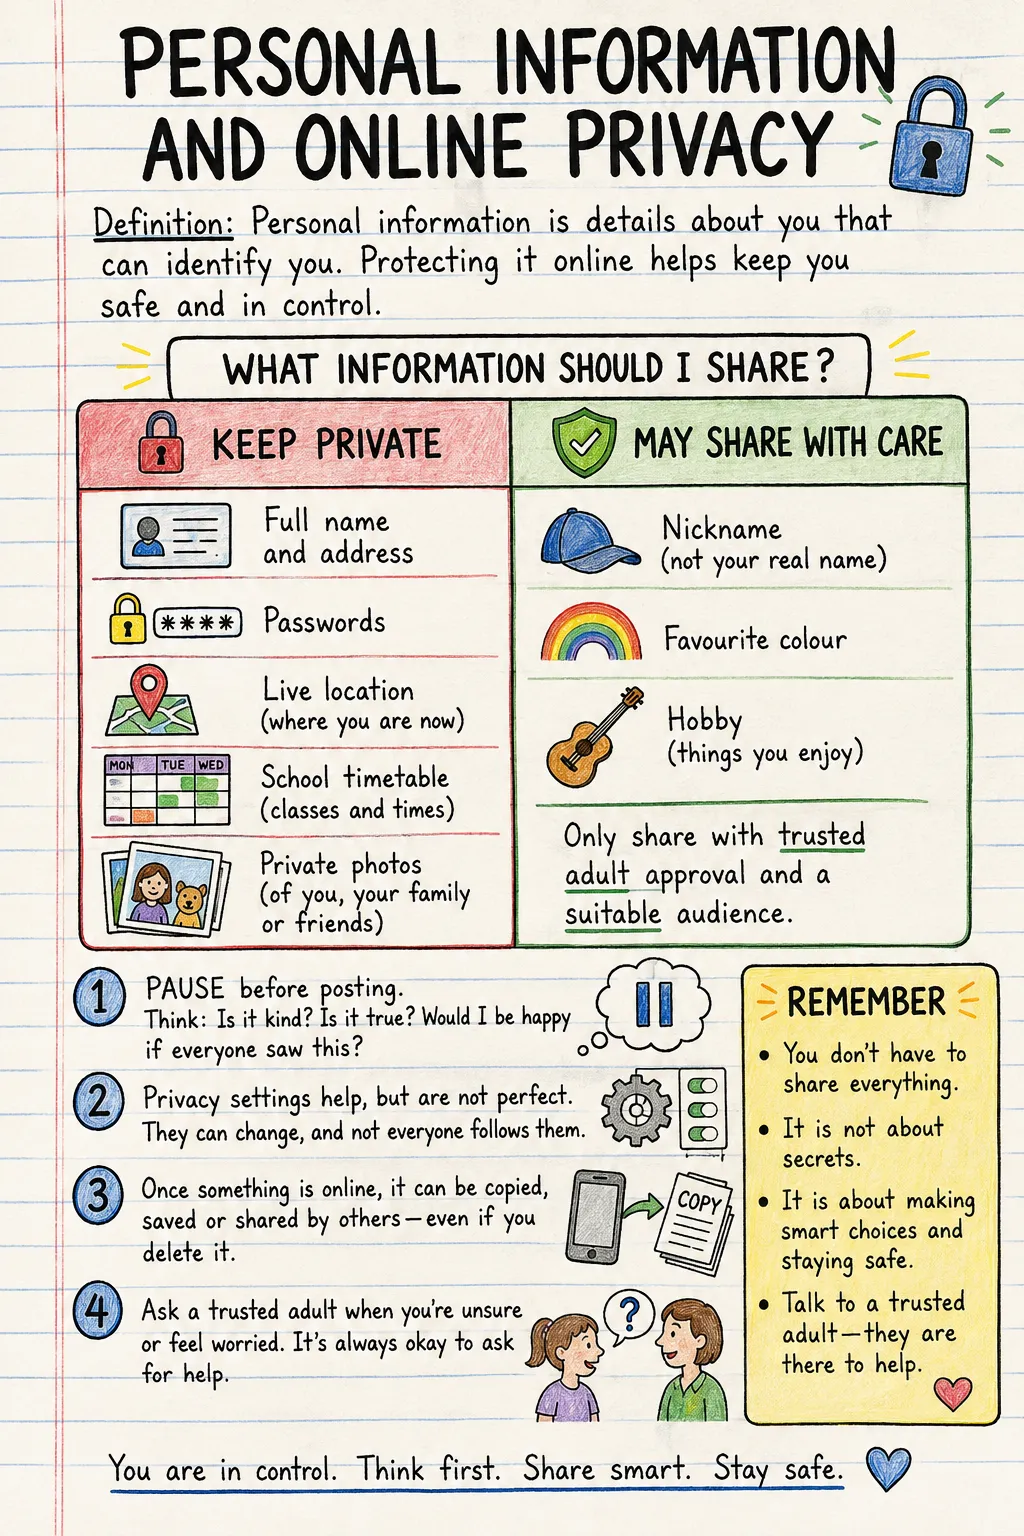 PERSONAL INFORMATION
AND ONLINE PRIVACY
Definition: Personal information is details about you that
can identify you. Protecting it online helps keep you
safe and in control.
WHAT INFORMATION SHOULD I SHARE?
KEEP PRIVATE
Full name
and address
****
Passwords
Live location
(where you are now)
MON TUE WED
School timetable
(classes and times)
Private photos
(of you, your family
or friends)
MAY SHARE WITH CARE
Nickname
(not your real name)
Favourite colour
Hobby
(things you enjoy)
Only share with trusted
adult approval and a
suitable audience.
1
PAUSE before posting.
Think: Is it kind? Is it true? Would I be happy
if everyone saw this?
2
Privacy settings help, but are not perfect.
They can change, and not everyone follows them.
3
Once something is online, it can be copied,
saved or shared by others—even if you
delete it.
COPY
4
Ask a trusted adult when you're unsure
or feel worried. It's always okay to ask
for help.
?
REMEMBER
• You don't have to
share everything.
• It is not about
secrets.
• It is about making
smart choices and
staying safe.
• Talk to a trusted
adult—they are
there to help.
You are in control. Think first. Share smart. Stay safe.